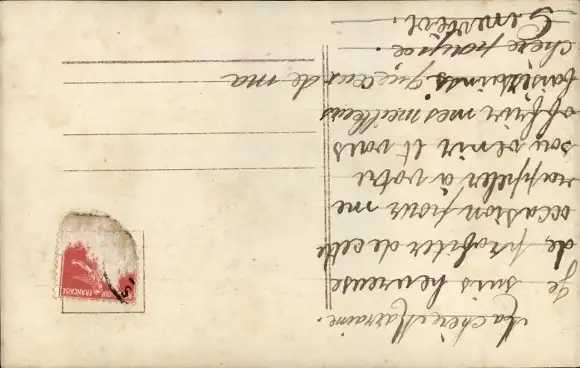 Ma chère Marraine.
Je suis heureuse
de profiter de cette
occasion pour me
rappeler à votre
souvenir et vous
offrir mes meilleurs
baisers ainsi que ceux de ma
chère
QUE FRANÇAISE